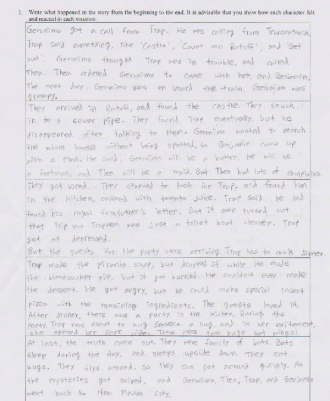 1. Write what happened in the story from the beginning to the end. It is advisable that you show how each character felt and reacted in each situation.
Geronimo got a call from Trap. He was calling from Transratania.
Trap said something, like "Castle", "Count von Ratoff", and "Get
out". Geronimo thought Trap was in trouble, and called
Thea. Thea ordered Geronimo to come with her, and Benjamin.
The next day, Geronimo was on board the train. Geronimo was
grumpy.
They arrived in Ratoff, and found the castle. They snuck
in to a sewer pipe. They found Trap eventually, but he
disappeared after talking to them. Geronimo wanted to search
the whole house without being spotted, so Benjamin came up
with a plan. He said, Geronimo will be a butler, he will be
a footman, and Thea will be a maid. But Thea had lots of complaints.
They got saved. They started to look for Trap, and found him
in the kitchen, covered with tomato juice. Trap said he had
found his royal forefather's letter. But it even turned out
that Trip von Trapson was just a toilet bowl cleaner. Trap
got all depressed.
But the guests for the party were arriving. Trap has to cook dinner.
Trap make the piranha soup, but dropped it while he made
the pie, but it got burned. He couldn't even make
the dessert. He got angry, but he could make special insect
pizza with the remaining ingredients. The guests loved it.
After dinner, there was a party in the kitchen. During the
party, Trap was about to a bug, and in her excitement,
she opened her cape wide. They were bat wings!
At last, the truth came out. They were family of bats. Bats
sleep during the day, and always upside down. They eat
bugs. They fly around, so they can get around quickly. All
the mysteries got solved, and Geronimo, Thea, Trap, and Benjamin
went back to New Mouse City.